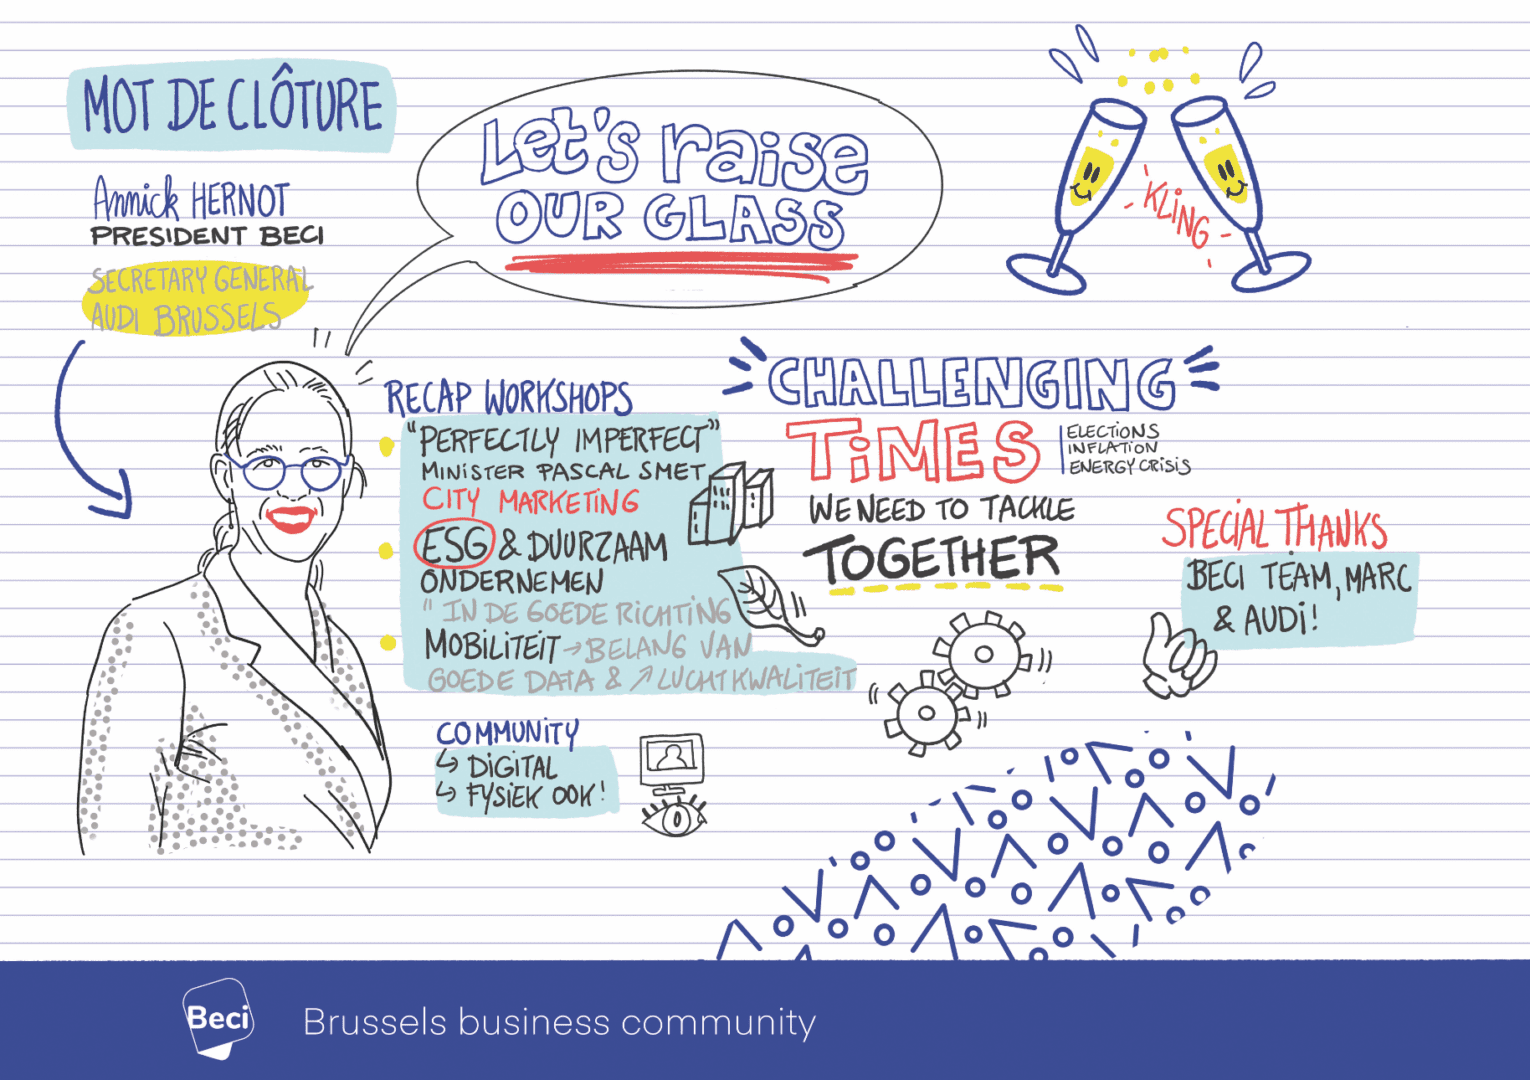 MOT DE CLÔTURE
Annick HERNOT
PRESIDENT BECI
SECRETARY GENERAL
AUDI BRUSSELS
Let's raise
OUR GLASS
KLING
RECAP WORKSHOPS
"PERFECTLY IMPERFECT"
MINISTER PASCAL SMET
CITY MARKETING
ESG & DUURZAAM
ONDERNEMEN
" IN DE GOEDE RICHTING
MOBILITEIT → BELANG VAN
GOEDE DATA & ↗ LUCHTKWALITEIT
COMMUNITY
↳ DIGITAL
↳ FYSIEK OOK!
CHALLENGING
TIMES
ELECTIONS
INFLATION
ENERGY CRISIS
WE NEED TO TACKLE
TOGETHER
SPECIAL THANKS
BECI TEAM, MARC
& AUDI!
Beci
Brussels business community